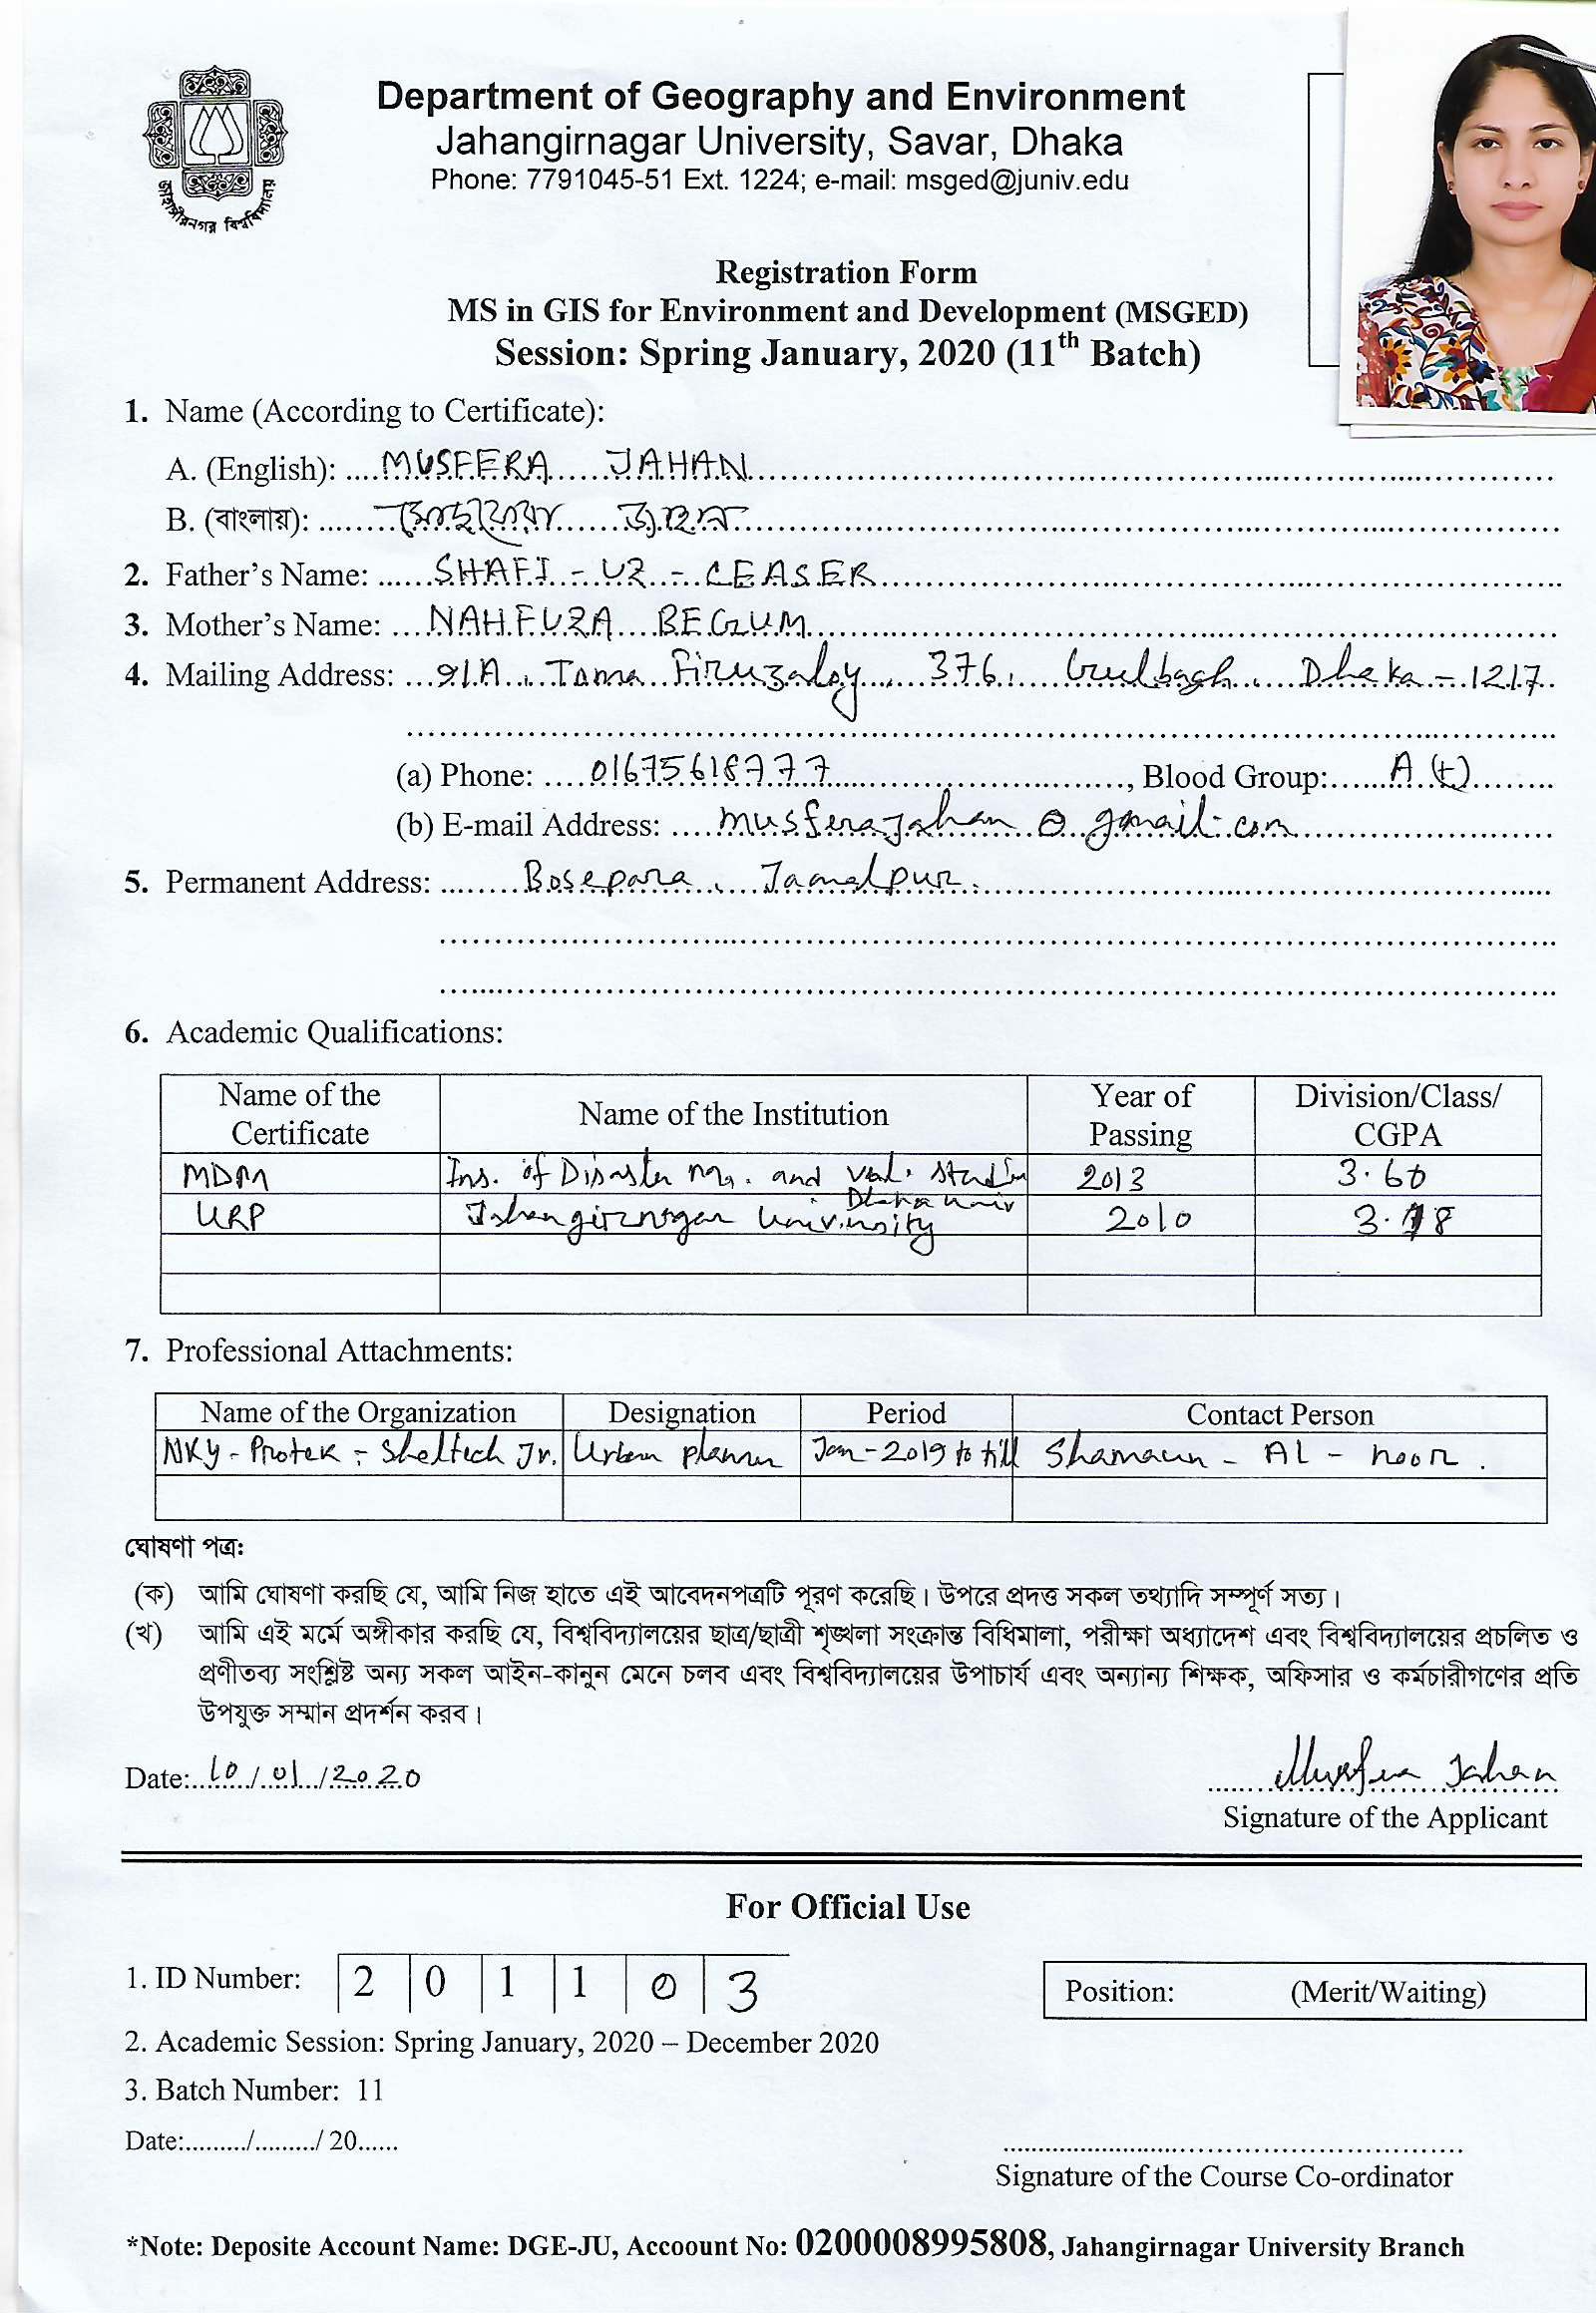 জাহাঙ্গীরনগর বিশ্ববিদ্যালয়
Department of Geography and Environment
Jahangirnagar University, Savar, Dhaka
Phone: 7791045-51 Ext. 1224; e-mail: msged@juniv.edu
Registration Form
MS in GIS for Environment and Development (MSGED)
Session: Spring January, 2020 (11th Batch)
1. Name (According to Certificate):
A. (English): MUSFERA JAHAN
B. (বাংলায়): জাহান
2. Father's Name: SHAFI - UZ - CEASER
3. Mother's Name: NAHFUZA BEGUM
4. Mailing Address: 91A, Toma 376, Gulbagh, Dhaka - 1217
(a) Phone: 01675618777, Blood Group: A (+)
(b) E-mail Address: musferajahan@gmail.com
5. Permanent Address: Bosepara, Jamalpur.
6. Academic Qualifications:
Name of the Certificate Name of the Institution Year of Passing Division/Class/ CGPA
MDM Ins. of Disaster Ma. and Vul. Studies 2013 3.60
Dhaka Univ
URP Jahangirnagar University 2010 3.18
7. Professional Attachments:
Name of the Organization Designation Period Contact Person
NKY - Protek - Sheltech Jv. Urban planner Jan - 2019 to till Shamaun - AL - noor.
ঘোষণা পত্র:
(ক) আমি ঘোষণা করছি যে, আমি নিজ হাতে এই আবেদনপত্রটি পূরণ করেছি। উপরে প্রদত্ত সকল তথ্যাদি সম্পূর্ণ সত্য।
(খ) আমি এই মর্মে অঙ্গীকার করছি যে, বিশ্ববিদ্যালয়ের ছাত্র/ছাত্রী শৃঙ্খলা সংক্রান্ত বিধিমালা, পরীক্ষা অধ্যাদেশ এবং বিশ্ববিদ্যালয়ের প্রচলিত ও
প্রণীতব্য সংশ্লিষ্ট অন্য সকল আইন-কানুন মেনে চলব এবং বিশ্ববিদ্যালয়ের উপাচার্য এবং অন্যান্য শিক্ষক, অফিসার ও কর্মচারীগণের প্রতি
উপযুক্ত সম্মান প্রদর্শন করব।
Date: 10/01/2020 Musfera Jahan
Signature of the Applicant
For Official Use
1. ID Number: 2 0 1 1 0 3 Position: (Merit/Waiting)
2. Academic Session: Spring January, 2020 – December 2020
3. Batch Number: 11
Date:........./........./ 20......
Signature of the Course Co-ordinator
*Note: Deposite Account Name: DGE-JU, Accoount No: 0200008995808, Jahangirnagar University Branch